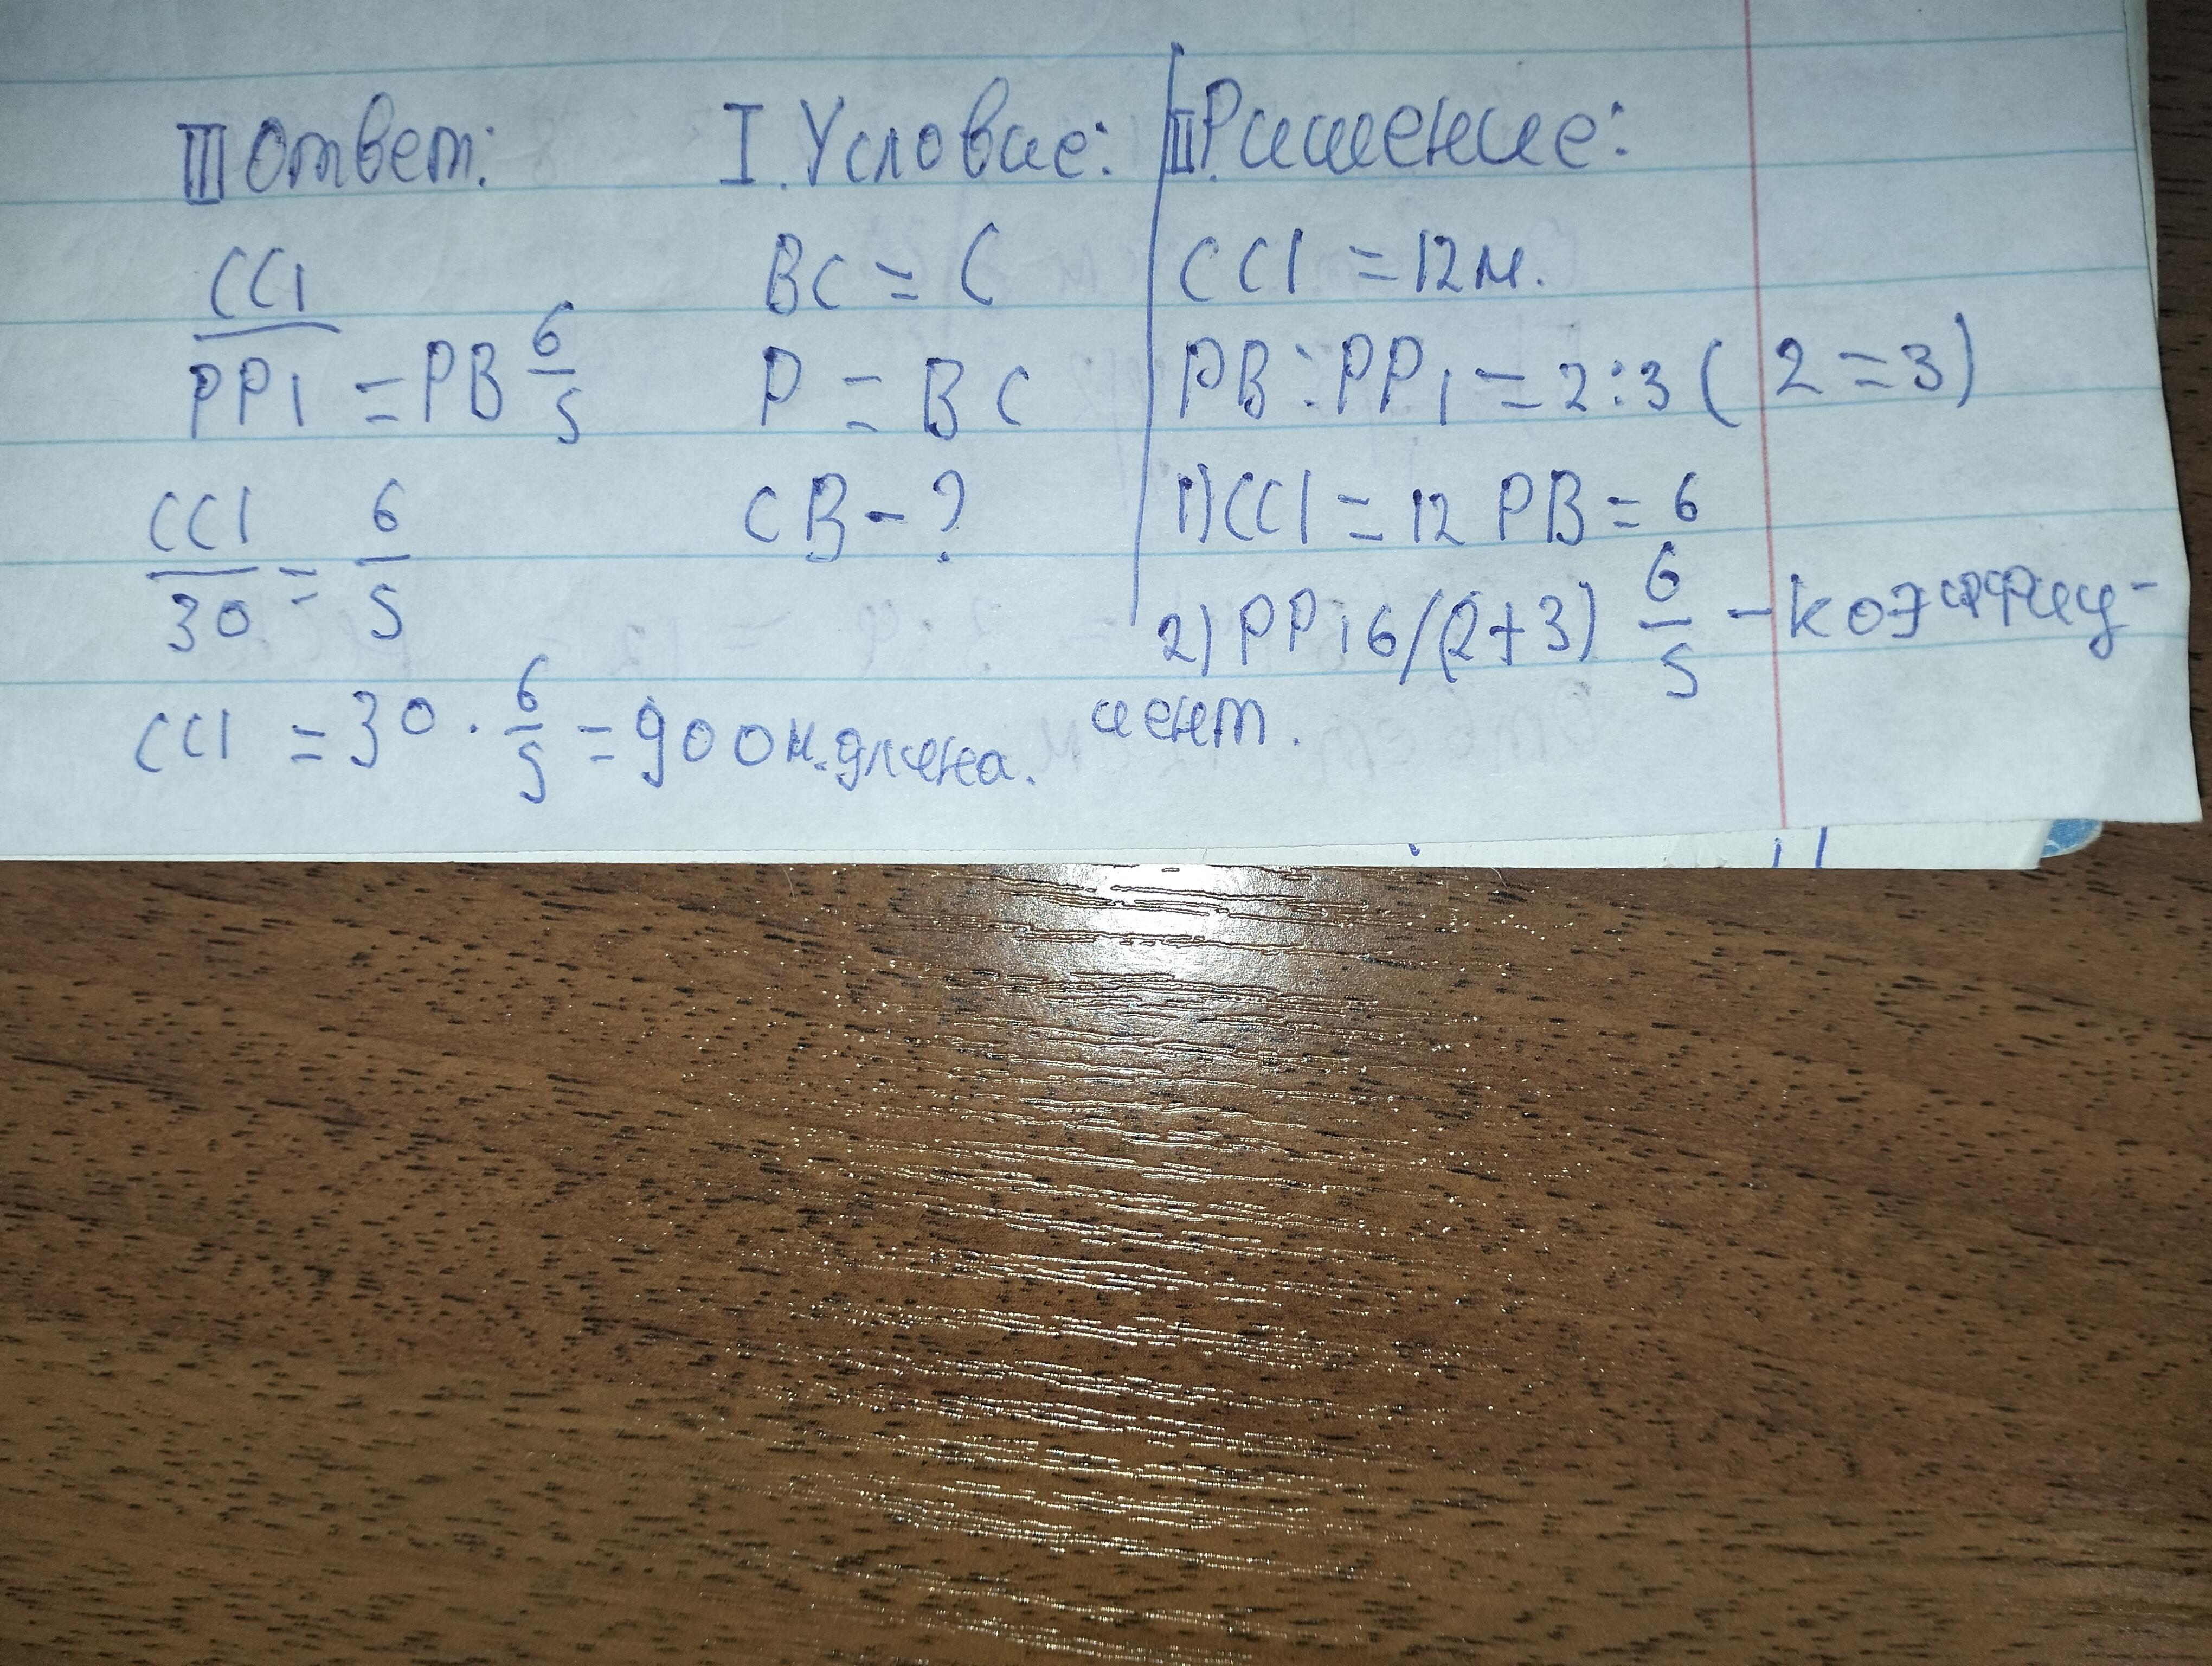 III Ответ:
CC1
PP1 = PB 6/5
CC1/30 = 6/5
CC1 = 30 · 6/5 = 900 м. длина.
I. Условие:
BC = C
P = BC
CB - ?
II Ришение:
CC1 = 12 м.
PB : PP1 = 2:3 ( 2 = 3)
1) CC1 = 12 PB = 6
2) PP1 6/(2+3) 6/5 -
циент.